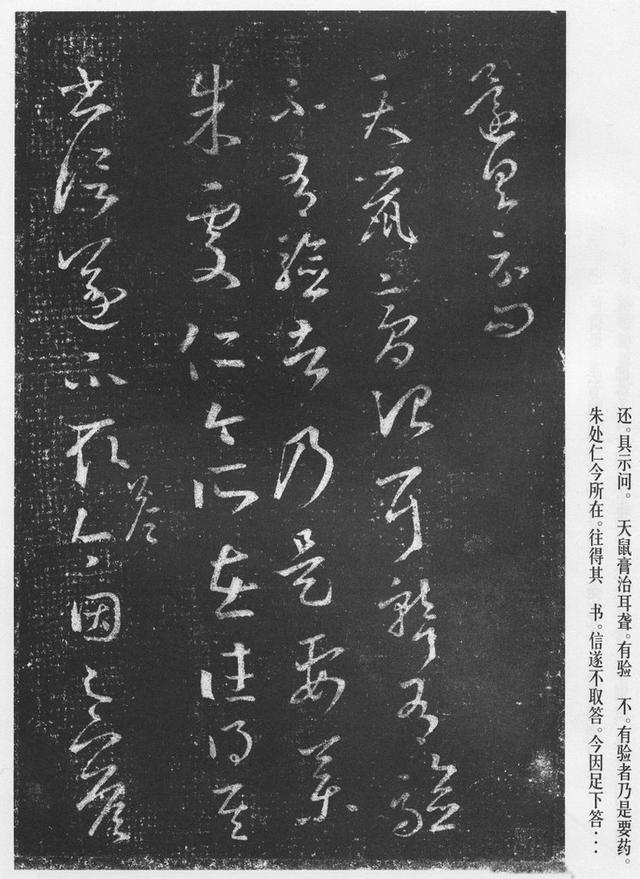 还具示问
天鼠膏治耳聋有验
不有验者乃是要药
朱处仁今所在往得其
书信遂不取答今因足下答
答
还。具示问。 天鼠膏治耳聋。有验 不。有验者乃是要药。
朱处仁今所在。往得其 书。信遂不取答。今因足下答···